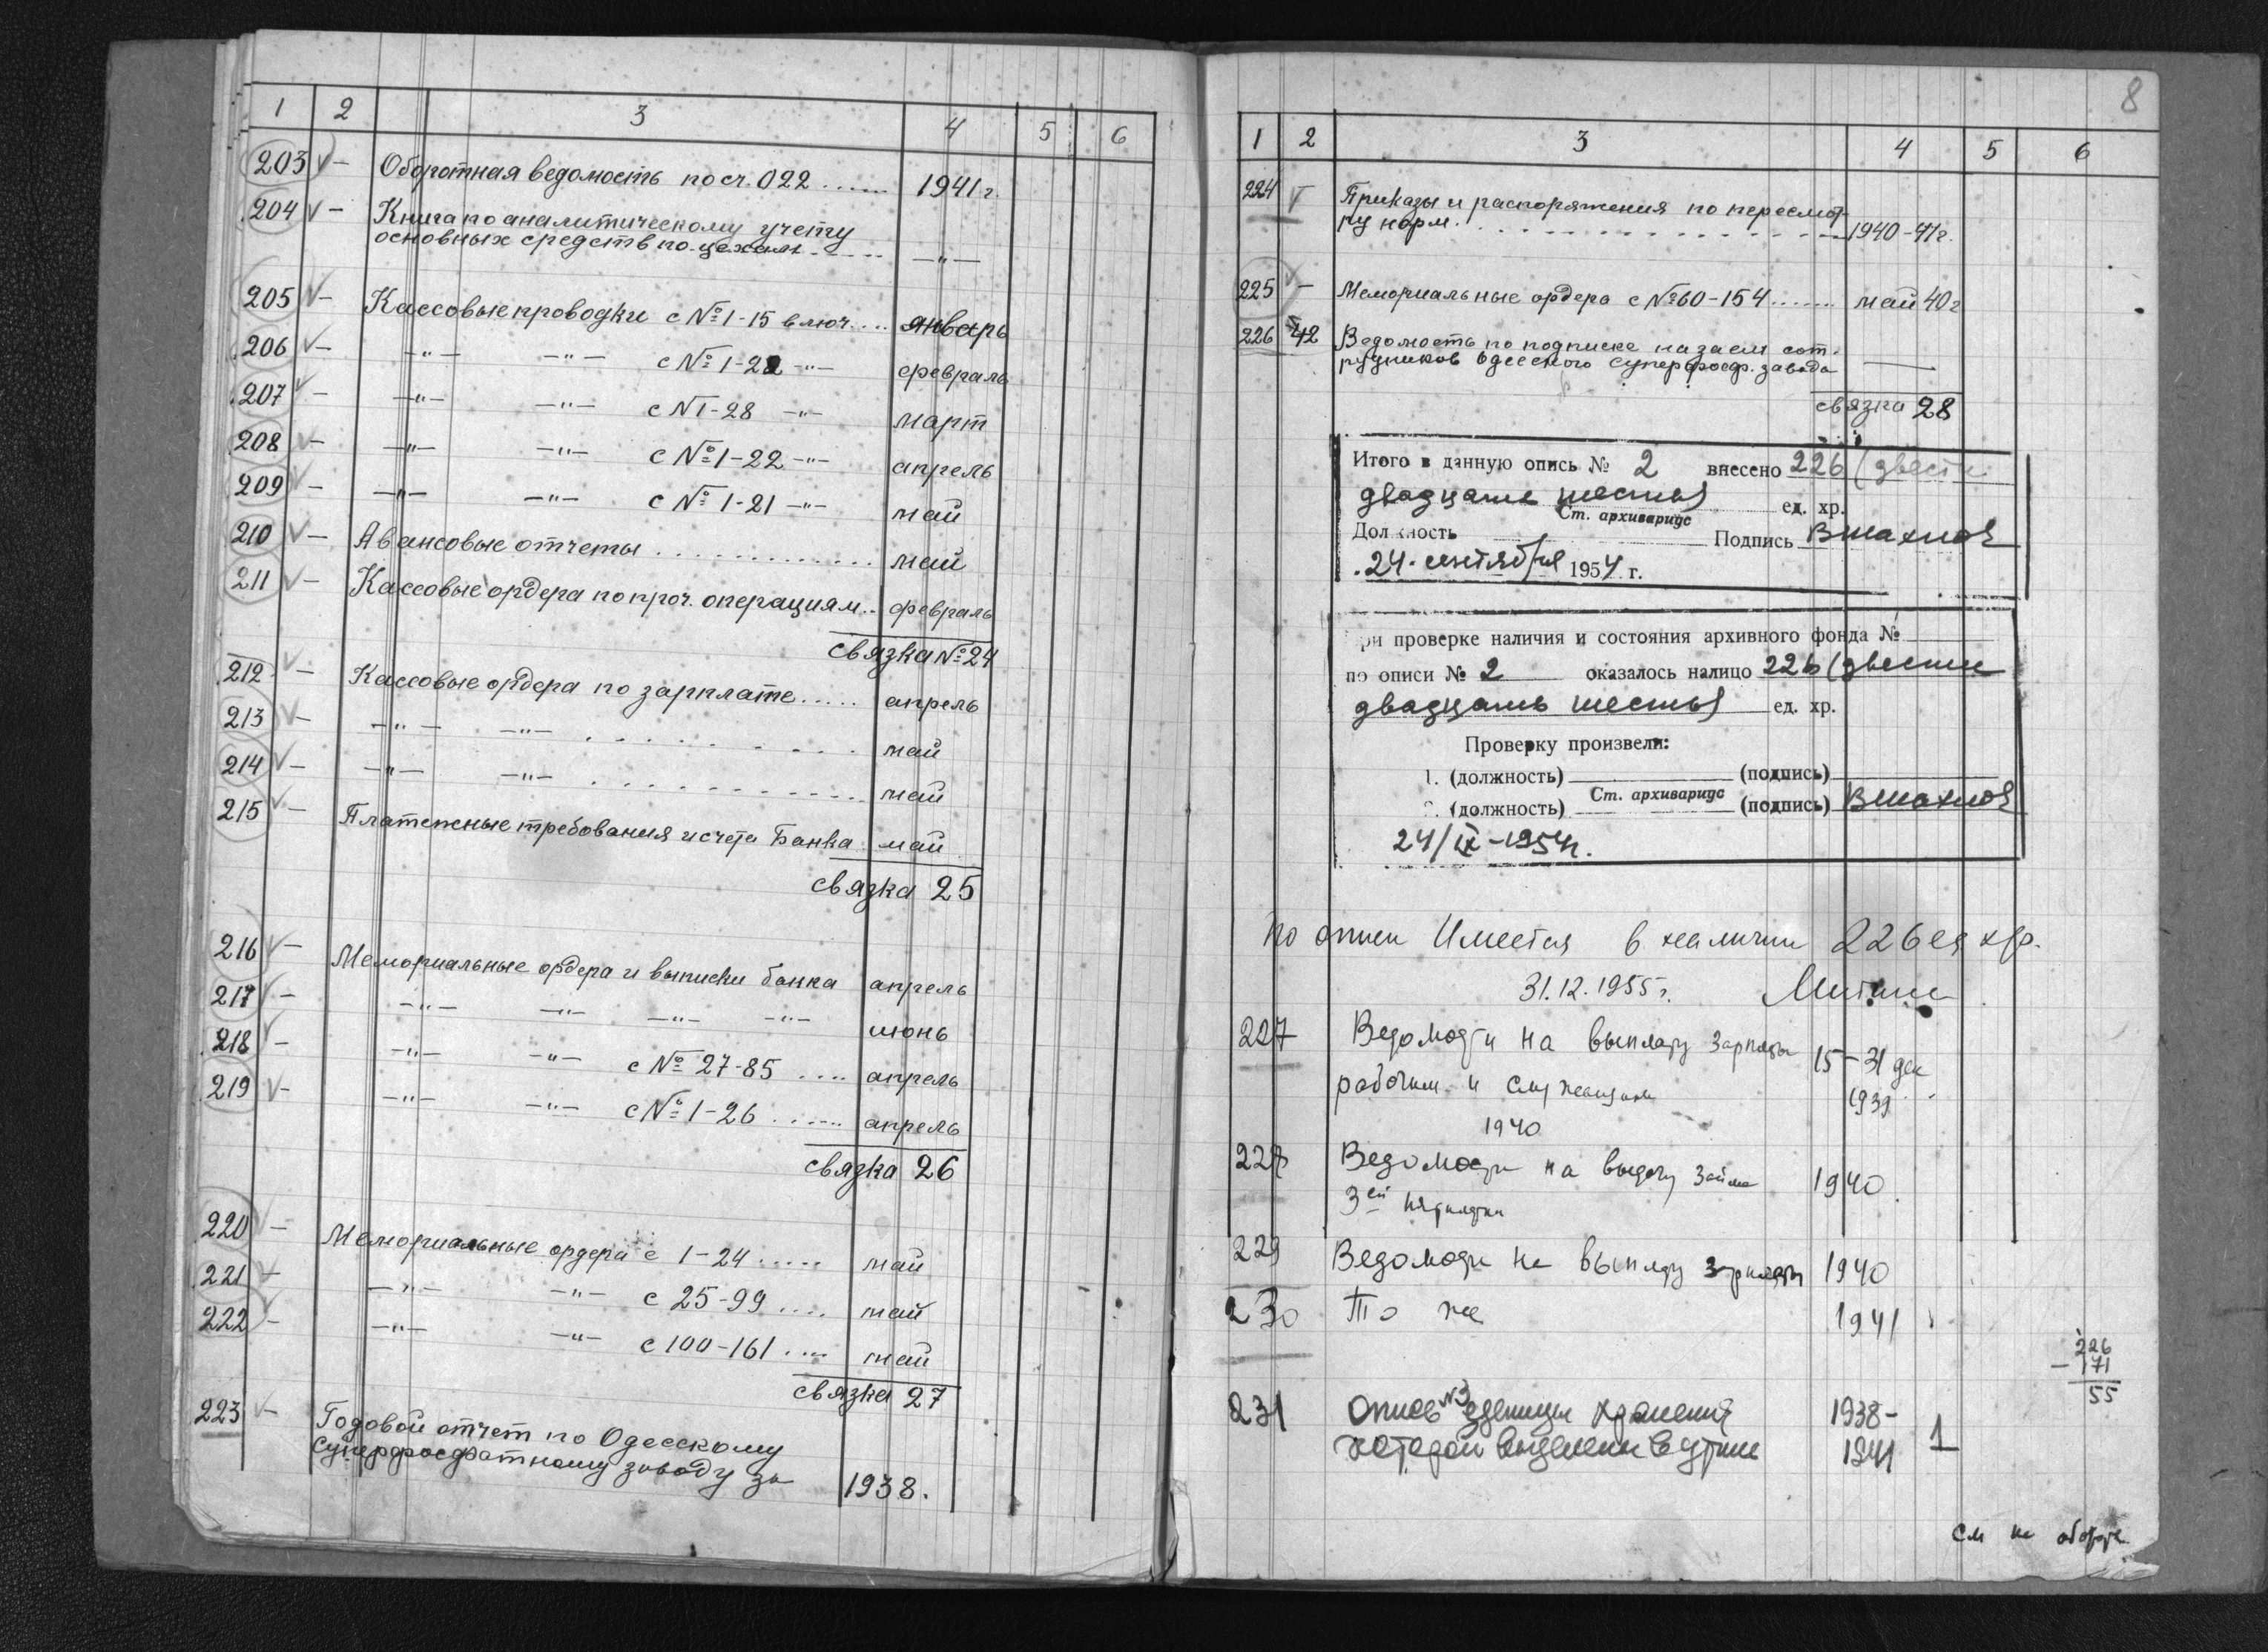 1 2 3 4 5 6
203 V – Оборотная ведомость по сч. 022 ...... 1941 г.
204 V – Книга по аналитическому учету
основных средств по цехам ...... –"–
205 V – Кассовые проводки с № 1-15 включ. ... январь
206 V – –"– –"– с № 1-22 –"– февраль
207 V – –"– –"– с N 1-28 –"– март
208 V – –"– –"– с № 1-22 –"– апрель
209 V – –"– –"– с № 1-21 –"– май
210 V – Авансовые отчеты ............ май
211 V – Кассовые ордера по проч. операциям .. февраль
связка № 24
212 V – Кассовые ордера по зарплате ..... апрель
213 V – –"– –"– .......... май
214 V – –"– –"– .......... май
215 V – Платежные требования и счета Банка май
связка 25
216 V – Мемориальные ордера и выписки банка апрель
217 V – –"– –"– –"– –"– июнь
218 V – –"– –"– с № 27-85 .... апрель
219 V – –"– –"– с № 1-26 ...... апрель
связка 26
220 V – Мемориальные ордера с 1-24 ..... май
221 V – –"– –"– с 25-99 .... май
222 V – –"– –"– с 100-161 .... май
связка 27
223 V Годовой отчет по Одесскому
суперфосфатному заводу за 1938.
8
1 2 3 4 5 6
224 V Приказы и распоряжения по пересмот-
ру норм. .............. 1940-41 г.
225 V – Мемориальные ордера с № 60-154 ....... май 40 г
226 42 Ведомость по подписке на заем сот-
рудников Одесского суперфосф. завода —
связка 28
Итого в данную опись № 2 внесено 226 (двести
двадцать шесть) ед. хр.
Должность Ст. архивариус Подпись
24 сентября 1954 г.
При проверке наличия и состояния архивного фонда №
по описи № 2 оказалось налицо 226 (двести
двадцать шесть) ед. хр.
Проверку произвели:
1. (должность) (подпись)
2. (должность) Ст. архивариус (подпись)
24/IX-1954 г.
По описи Имеется в наличии 226 ед хр.
31.12.1955 г.
227 Ведомости на выплату зарплаты 15-31 дек
рабочим и служащим 1939
1940
228 Ведомости на выдачу Займа 1940.
3ей пятилетки
229 Ведомости на выплату зарплаты 1940
230 То же 1941
226
– 171
55
231 Опись №3 единицы хранения 1938-
которой выделены в утиль 1941 1
См на обороте